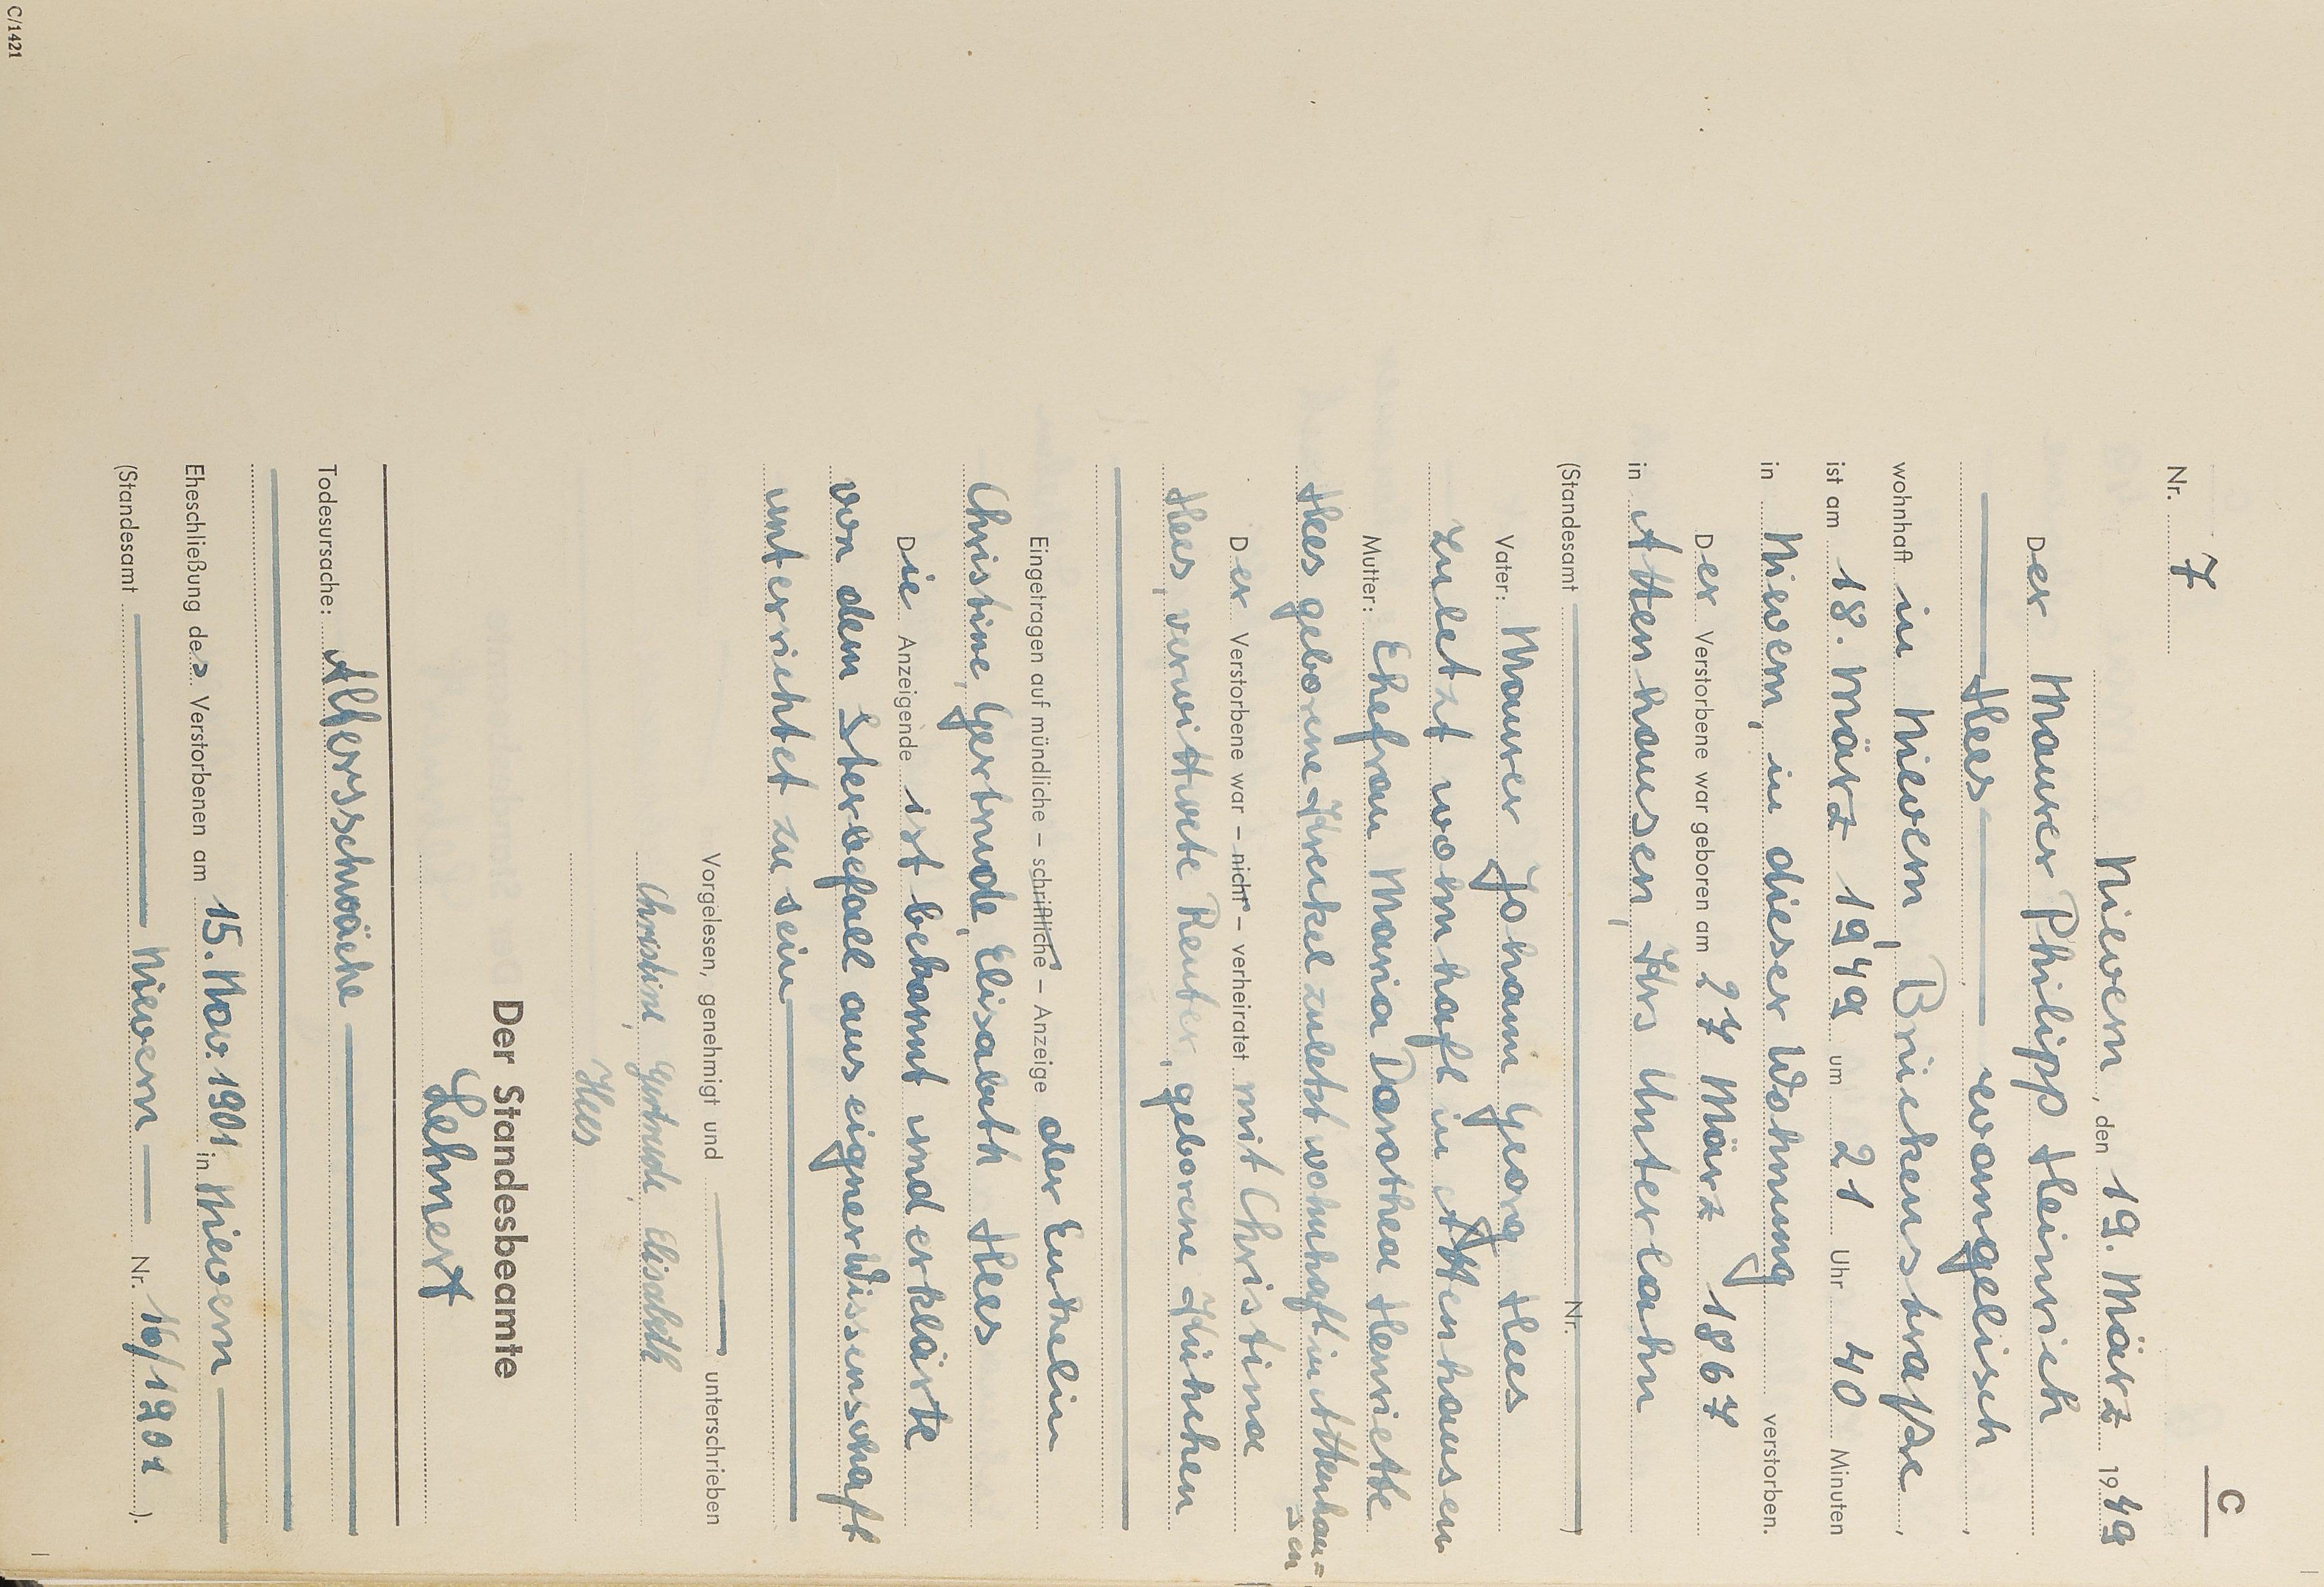 C
Nr. 7
Nievern, den 19. März 1949
Der Maurer Philipp Heinrich
Hees evangelisch,
wohnhaft in Nievern, Brückenstraße,
ist am 18. März 1949 um 21 Uhr 40 Minuten
in Nievern, in dieser Wohnung verstorben.
Der Verstorbene war geboren am 27 März 1867
in Attenhausen, Krs Unterlahn
(Standesamt Nr. )
Vater: Maurer Johann Georg Hees
zuletzt wohnhaft in Attenhausen
Mutter: Ehefrau Maria Dorothea Henriette
Hees geborene Krenkel zuletzt wohnhaft in Attenhau=
sen
Der Verstorbene war – nicht – verheiratet mit Christina
Hees, verwittwete Reuter, geborene
Eingetragen auf mündliche – schriftliche – Anzeige der Enkelin
Christine, Gertrude, Elisabeth Hees
Die Anzeigende ist bekannt und erklärte
von dem Sterbefall aus eigner Wissenschaft
unterrichtet zu sein
Vorgelesen, genehmigt und unterschrieben
Christine, Gertrude, Elisabeth
Hees
Der Standesbeamte
Lehnert
Todesursache: Altersschwäche
Eheschließung des Verstorbenen am 15. Nov. 1901 in Nievern
(Standesamt Nievern Nr. 16/1901 ).
C/1421